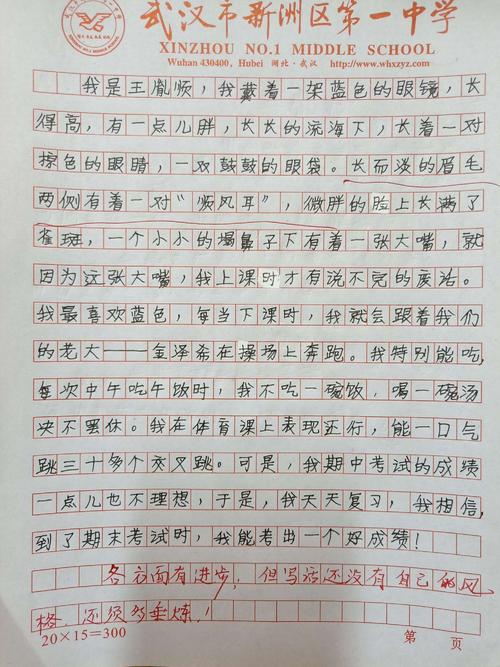 武汉市新洲区第一中学
XINZHOU NO.1 MIDDLE SCHOOL
Wuhan 430400, Hubei 湖北·武汉 http://www.whxzyz.com
我是王胤顺，我戴着一架蓝色的眼镜，长
得高，有一点儿胖，长长的流海下，长着一对
棕色的眼睛，一双鼓鼓的眼袋。长而淡的眉毛
两侧有着一对“顺风耳”，微胖的脸上长满了
雀斑，一个小小的塌鼻子下有着一张大嘴，就
因为这张大嘴，我上课时才有说不完的废话。
我最喜欢蓝色，每当下课时，我就会跟着我们
的老大——金泽希在操场上奔跑。我特别能吃，
每次中午吃午饭时，我不吃一碗饭，喝一碗汤
决不罢休。我在体育课上表现还行，能一口气
跳三十多个交叉跳。可是，我期中考试的成绩
一点儿也不理想，于是，我天天复习，我相信，
到了期末考试时，我能考出一个好成绩！
各方面有进步，但写话还没有自己的风
格，还须多垂炼！
20×15=300 第 页